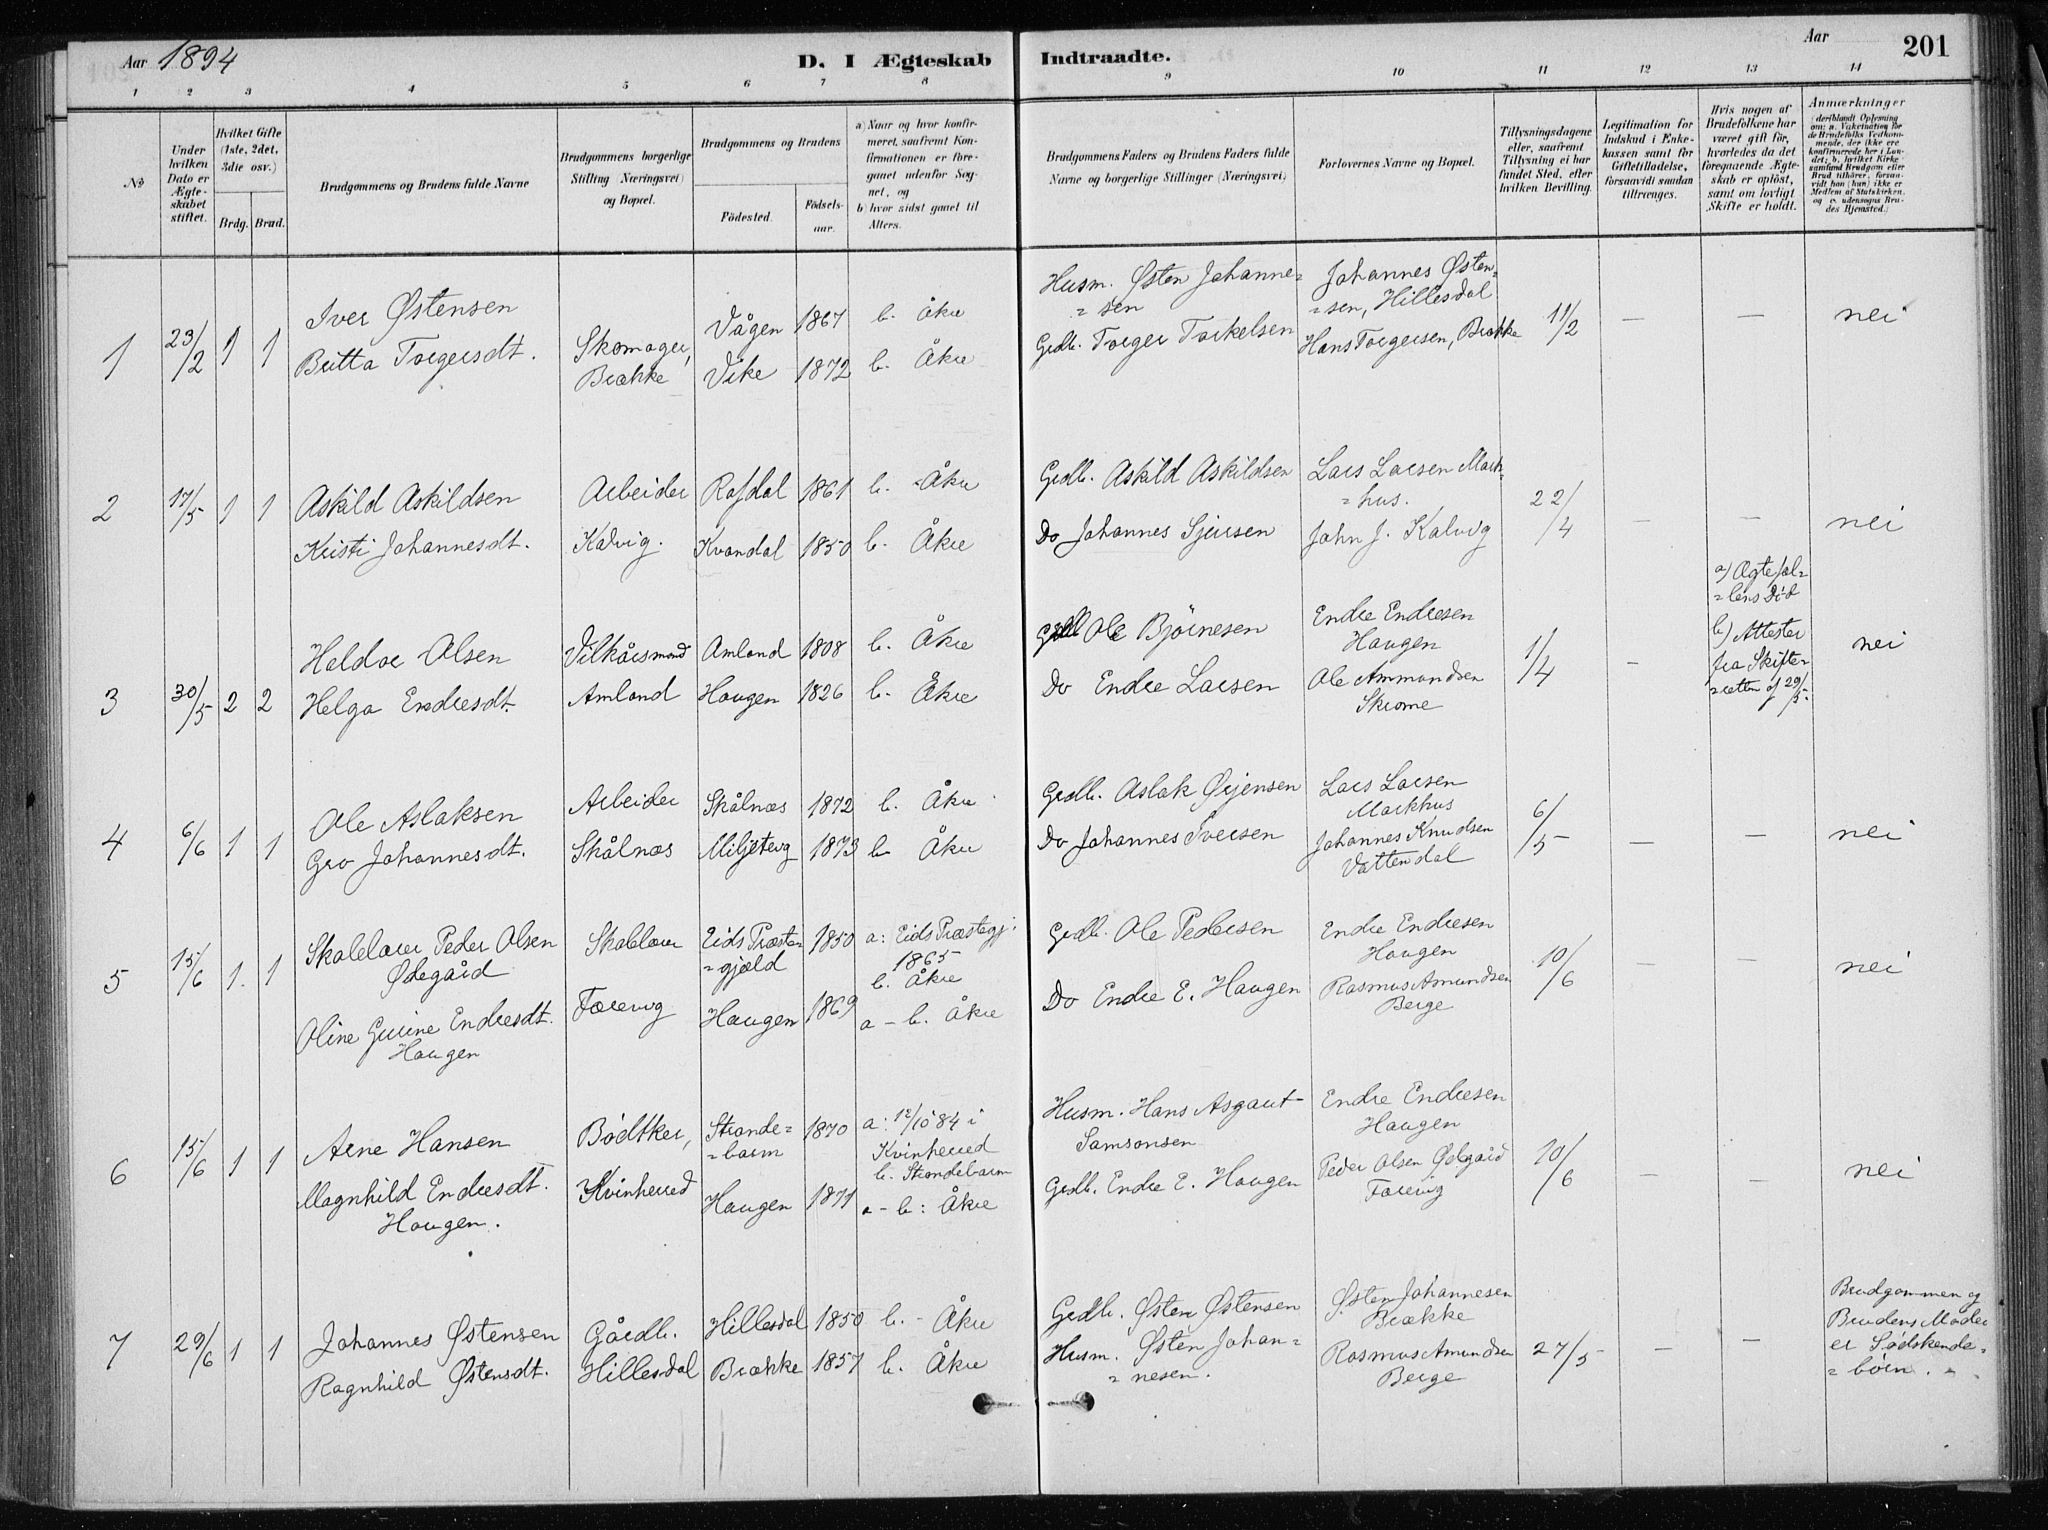 Aar 1894
D. I Ægteskab Indtraadte.
Aar
201
1 2 3 4 5 6 7 8 9 10 11 12 13 14
No
Under hvilken Dato er Ægteskabet stiftet.
Hvilket Gifte (1ste, 2det, 3die osv.)
Brdg. Brud.
Brudgommens og Brudens fulde Navne
Brudgommens borgerlige Stilling (Næringsvei) og Bopæl.
Brudgommens og Brudens
Födested.
Födselsaar.
a) Naar og hvor konfirmeret, saafremt Konfirmationen er foregaaet udenfor Sognet, og
b) hvor sidst gaaet til Alters.
Brudgommens Faders og Brudens Faders fulde Navne og borgerlige Stillinger (Næringsvei).
Forlovernes Navne og Bopæl.
Tillysningsdagene eller, saafremt Tillysning ei har fundet Sted, efter hvilken Bevilling.
Legitimation for Indskud i Enkekassen samt for Giftetilladelse, forsaavidt saadan tiltrænges.
Hvis nogen af Brudefolkene har været gift för, hvorledes da det foregaaende Ægteskab er oplöst, samt om lovligt Skifte er holdt.
Anmærkninger (deriblandt Oplysning om: a. Vakcination for de Brudefolks Vedkommende, der ikke ere konfirmerede her i Landet; b. hvilket Kirkesamfund Brudgom eller Brud tilhörer, forsaavidt han (hun) ikke er Medlem af Statskirken, og c. udensogns Brudes Hjemsted.)
1 23/2 1 1
Iver Østensen
Britta Torgersdt.
Skomager,
Brække
Vågen 1867 b. Åkre
Vike 1872 b. Åkre
Husm. Østen Johanne=
=sen
Grdb. Torger Torkelsen
Johannes Østen=
=sen, Hillesdal
Hans Torgersen, Brække
11/2 — — nei
2 17/5 1 1
Askild Askildsen
Kristi Johannesdt.
Arbeider
Kalvig.
Rafdal 1861 b. Åkre
Kvandal 1850 b. Åkre
Grdb. Askild Askildsen
Do Johannes Sjursen
Lars Larsen Mark=
=hus.
John J. Kalvig
22/4 — — nei
3 30/5 2 2
Haldor Olsen
Helga Endresdt.
Vilkårsmand
Amland
Amland 1808 b. Åkre
Haugen 1826 b. Åkre
Grdb Ole Bjørnesen
Do Endre Larsen
Endre Endresen
Haugen
Ole Ammundsen
Skrome
1/4 —
a) Ægtefæl=
=lens Død
b) Attester
fra Skifte=
=retten af 29/5.
nei
4 6/6 1 1
Ole Aslaksen
Gro Johannesdt.
Arbeider
Skålnæs
Skålnæs 1872 b. Åkre
Miljeteig 1873 b Åkre
Grdb. Aslak Ørjensen
Do Johannes Iversen
Lars Larsen
Markhus
Johannes Knudsen
Vattendal
6/5 — — nei
5 15/6 1. 1
Skolelærer Peder Olsen
Ødegård
Oline Gurine Endresdt.
Haugen
Skolelærer
Færevig
Eids Præste=
=gjæld 1850
Haugen 1869
a: Eids Præstegj.
1865
b. Åkre
a – b. Åkre
Grdb. Ole Pedersen
Do Endre E. Haugen
Endre Endresen
Haugen
Rasmus Amundsen
Berge
10/6 — — nei
6 15/6 1 1
Arne Hansen
Magnhild Endresdt.
Haugen.
Bødtker,
Kvinherred
Strande=
=barm 1870
Haugen 1871
a: 12/10 84 i
Kvinherred
b. Strandebarm
a – b: Åkre
Husm. Hans Asgaut
Samsonsen
Grdb. Endre E. Haugen
Endre Endresen
Haugen
Peder Olsen Ødegård
Færevig
10/6 — — nei
7 29/6 1 1
Johannes Østensen
Ragnhild Østensdt.
Gårdb.
Hillesdal
Hillesdal 1850 b. – Åkre
Brække 1857 b. Åkre
Grdb. Østen Østensen
Husm. Østen Johan=
=nesen.
Østen Johannesen
Brække
Rasmus Amundsen
Berge
27/5 — —
Brudgommen og
Brudens Moder
er Sødskende=
=børn.